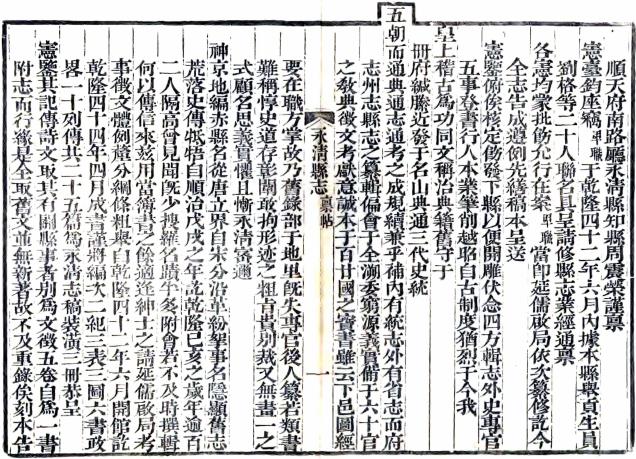 順天府南路廳永清縣知縣周震榮謹稟
憲臺鈞座竊卑職于乾隆四十二年六月內據本縣舉貢生員
劉格等二十人聯名具呈請修縣志業經通稟
各憲均蒙批飭允行在案卑職當卽延儒啟局依次纂修訖今
全志告成遵例先繕稿本呈送
憲鑒俯俟核定飭發下縣以便開雕伏念四方輯志外史專官
五事登書行人本業筆削越自古制度猶烈于今我
皇上稽古爲功同文稱治典籍舊守于
冊府緘縢近發于名山典通三代史統
五朝而通典通志通考之成規續兼乎補內有統志外有省志而府
志州志縣志之纂輯偏會于全溯委窮源義實備于六十官
之敎典徵文考獻意誠本于百廿國之寶書雖云下邑圖經
永清縣志 稟帖 一
要在職方掌故乃舊錄部于地里旣失專官後人纂若類書
難稱惇史道存彰闡敢拘形迹之粗旨貴別裁又無畫一之
式顧名思義實懼且慚永清密邇
神京地編赤縣名從唐立界自宋分沿革紛挐事名隱顯舊志
荒落史傳牴牾自順治戊戌之年訖乾隆己亥之歲年逾百
二人隔高曾見聞旣少搜羅名蹟半多附會若不及時撰輯
何以傳信來玆用當簿書之餘適逢紳士之請延儒啟局考
事徵文體例釐分綱條粗舉自乾隆四十二年六月開館訖
乾隆四十四年四月成書謹將編次二紀三表三圖六書政
畧一十列傳共二十五篇爲永清志稿裝潢三冊恭呈
憲鑒其記傳詩文取其有關縣事者別爲文徵五卷自爲一書
附志而行緣是全取舊文並無新著故不及重錄俟刻本告